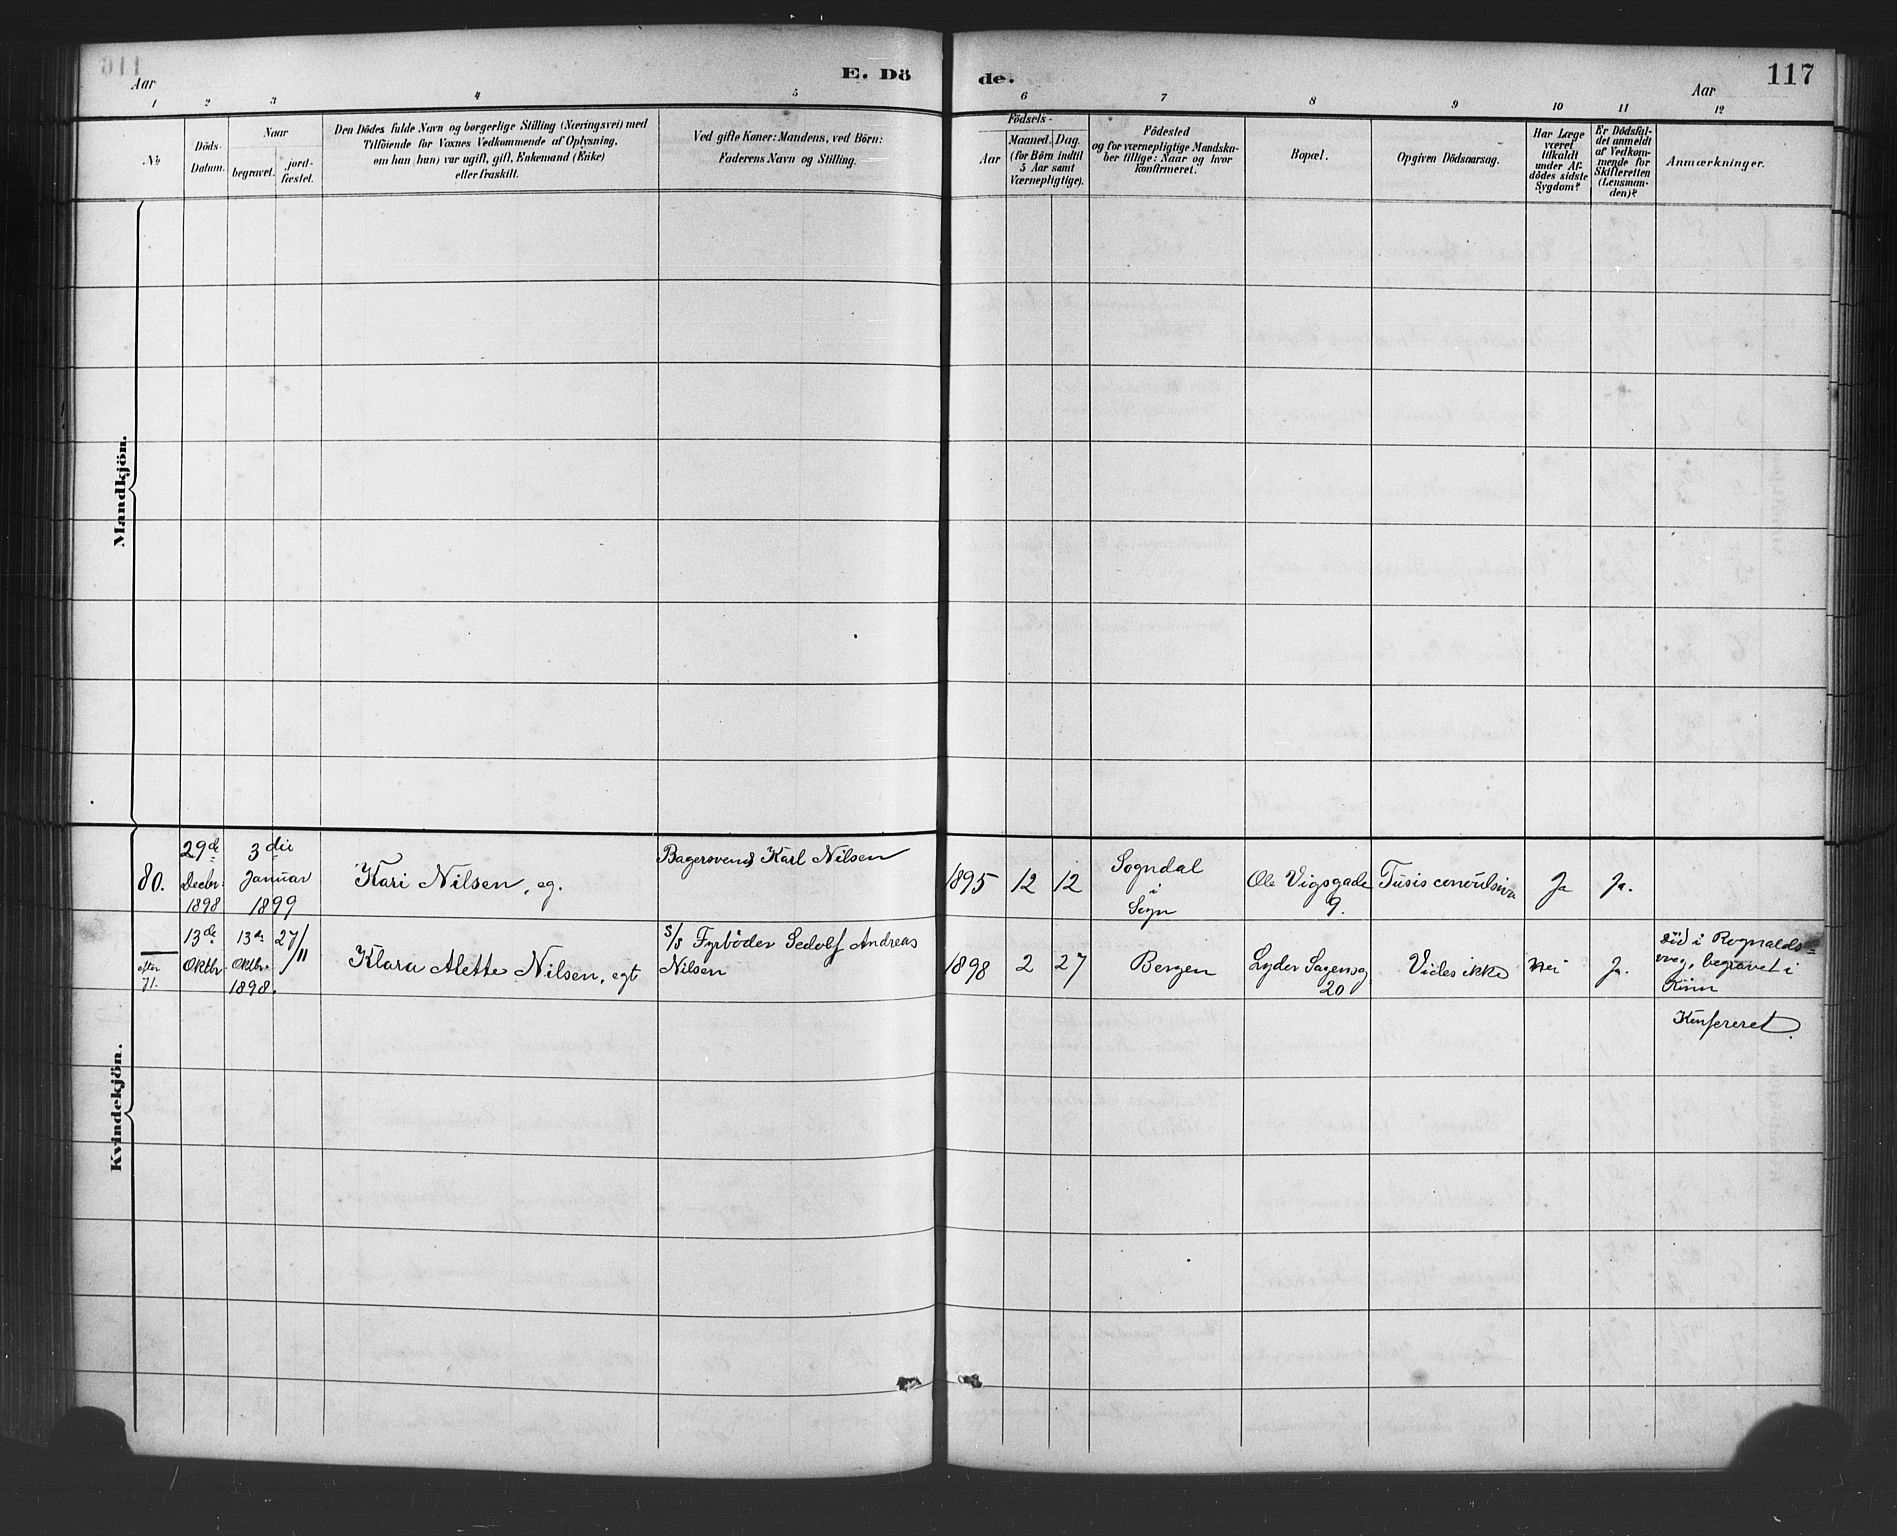 Aar
E. Dö
de.
Aar
117
1 2 3 4 5 6 7 8 9 10 11 12
No
Döds-
Datum.
Naar
begravet.
jord-
fæstet.
Den Dödes fulde Navn og borgerlige Stilling (Næringsvei) med
Tilföiende for Voxnes Vedkommende af Oplysning,
om han (hun) var ugift, gift, Enkemand (Enke)
eller fraskilt.
Ved gifte Koner: Mandens, ved Börn:
Faderens Navn og Stilling.
Födsels-
Aar
Maaned.
Dag.
(for Börn indtil
5 Aar samt
Værnepligtige).
Födested
og for værnepligtige Mandska-
ber tillige: Naar og hvor
konfirmeret.
Bopæl.
Opgiven Dödsaarsag.
Har Læge
været
tilkaldt
under Af-
dödes sidste
Sygdom?
Er Dödsfal-
det anmeldt
af Vedkom-
mende for
Skifteretten
(Lensman-
den)?
Anmærkninger.
Mandkjön.
Kvindekjön.
80.
29de
Decbr.
1898
3die
Januar
1899
Kari Nilsen, eg.
Bagersvend Karl Nilsen
1895
12
12
Sogndal
i
Sogn
Ole Vigsgade
9.
Tusis convulsiva
Ja
Ja.
efter
71.
13de
Oktbr.
13de
Oktbr.
1898.
27/11
Klara Alette Nilsen, egt
S/S Fyrböder Sedolf Andreas
Nilsen
1898
2
27
Bergen
Lyder Sagensg
20
Vides ikke
Nei
Ja.
Död i Rognalds-
vaag, begravet i
Kinn
Konfereret.